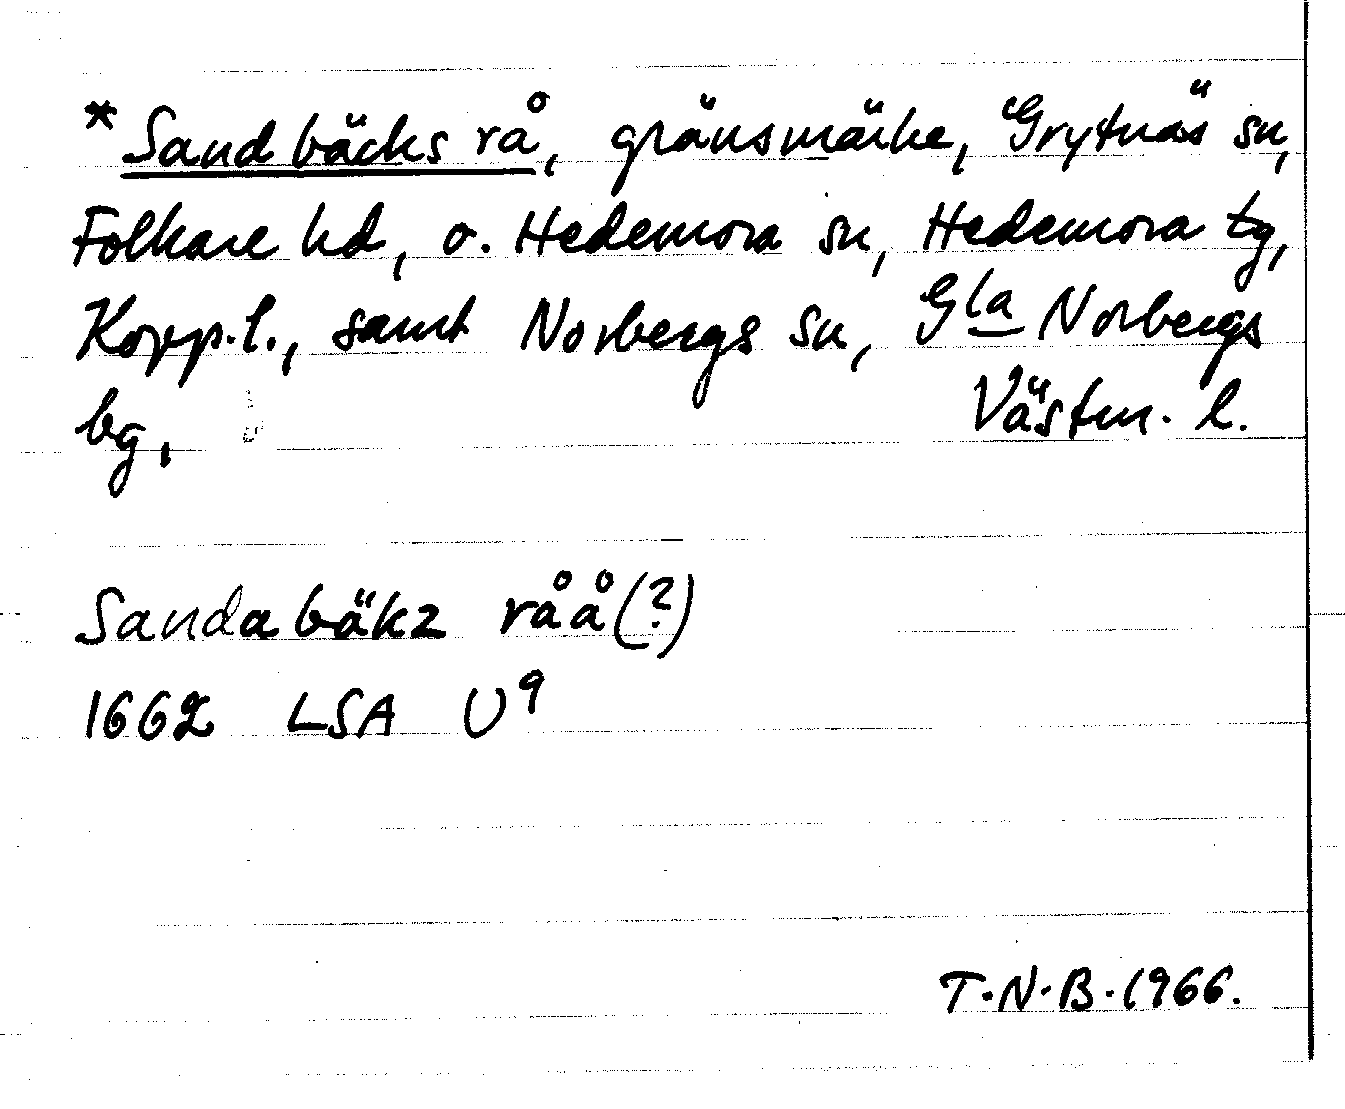 * Sandbäcks rå, gränsmärke, Grytnäs sn,
Folkare hd, o. Hedemora sn, Hedemora tg,
Kopp.l., samt Norbergs sn, Gla Norbergs
bg, Västm. l.
Sandabäkz råå(?)
1662 LSA U9
T.N.B. 1966.